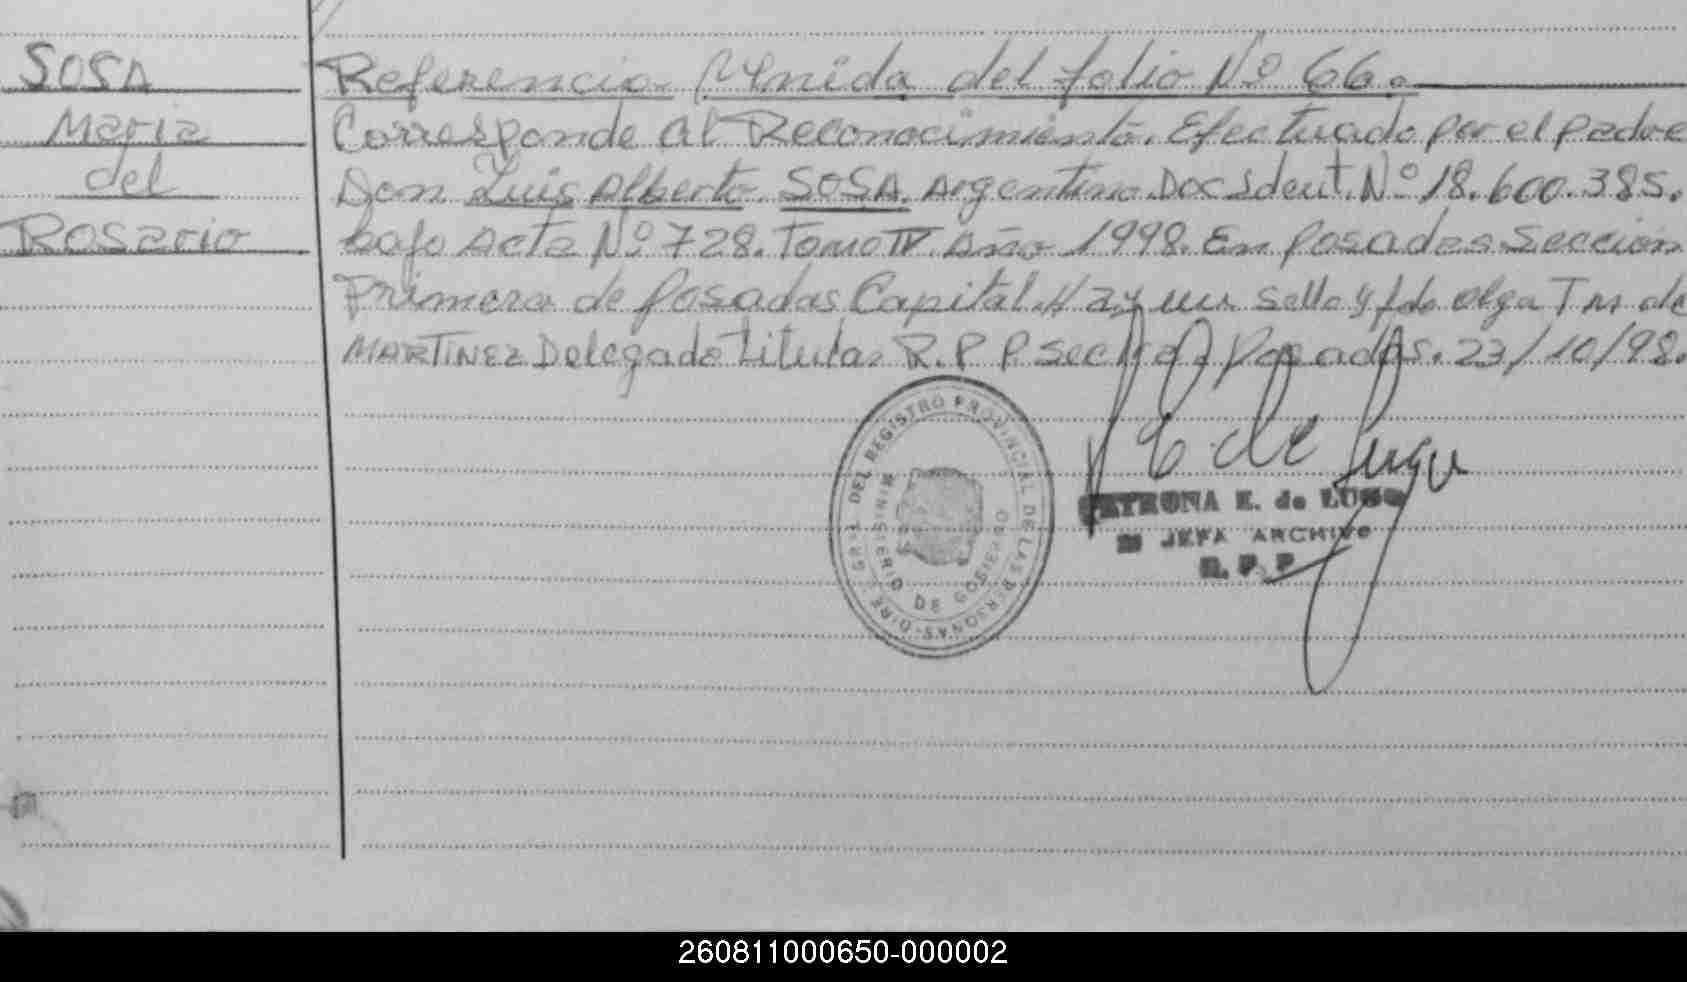 SOSA
Maria
del
Rosario
Referencia Venida del folio Nº 66.
Corresponde al Reconocimiento. Efectuado por el padre
Don Luis Alberto SOSA. Argentino Doc Ident. Nº 18.600.385.
bajo Acta Nº 728. Tomo IV. Año 1998. En Posadas Sección
Primera de Posadas Capital. Hay un sello y fdo Olga T M de
MARTINEZ Delegado titular R.P.P Sec 1ra Posadas. 23/10/98.
DEL REGISTRO PROVINCIAL DE LAS PERSONAS-DIRE
MINISTERIO DE GOBIERNO
E. de Lugo
PETRONA E. de LUGO
JEFA ARCHIVO
R. P. P
260811000650-000002